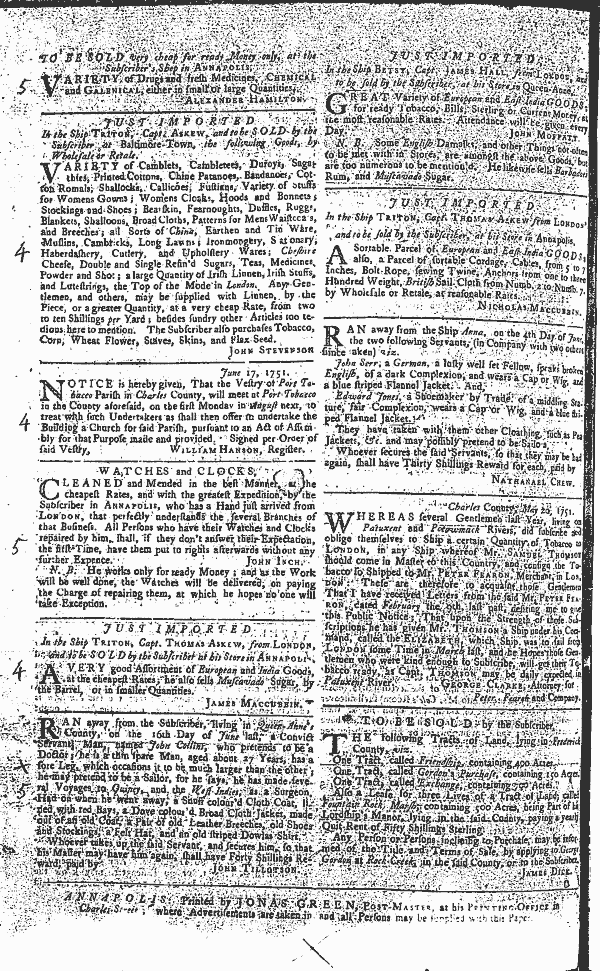 TO BE SOLD very cheap for ready Money only, at the
Subscriber's Shop in ANNAPOLIS,
VARIETY of Drugs and fresh Medicines, CHEMICAL
and GALENICAL, either in small or large Quantities.
ALEXANDER HAMILTON.
5
JUST IMPORTED
In the Ship TRITON, Capt. ASKEW, and to be SOLD by the
Subscriber at Baltimore-Town, the following Goods, by
Wholesale or Retale.
VARIETY of Camblets, Cambletees, Duroys, Sagathies,
Printed Cottons, China Patanoes, Bandanoes, Cotton
Romals, Shallocks, Callicoes, Fustians, Variety of Stuffs
for Womens Gowns; Womens Cloaks, Hoods and Bonnets;
Stockings and Shoes; Bearskin, Fearnoughts, Duffles, Ruggs,
Blankets, Shalloons, Broad Cloths, Patterns for Mens Waistcoats,
and Breeches; all Sorts of China, Earthen and Tin Ware,
Muslins, Cambricks, Long Lawns; Ironmongery, Stationary;
Haberdashery, Cutlery, and Upholstery Wares; Cheshire
Cheese, Double and Single Refin'd Sugars, Teas, Medicines,
Powder and Shot; a large Quantity of Irish Linnen, Irish Stuffs,
and Lutestrings, the Top of the Mode in London. Any Gentlemen,
and others, may be supplied with Linnen, by the
Piece, or a greater Quantity, at a very cheap Rate, from two
to ten Shillings per Yard; besides sundry other Articles too tedious
here to mention. The Subscriber also purchases Tobacco,
Corn, Wheat Flower, Staves, Skins, and Flax Seed.
JOHN STEVENSON
4
June 17, 1751.
NOTICE is hereby given, That the Vestry of Port Tobacco
Parish in Charles County, will meet at Port-Tobacco
in the County aforesaid, on the first Monday in August next, to
treat with such Undertakers as shall then offer to undertake the
Building a Church for said Parish, pursuant to an Act of Assembly
for that Purpose made and provided. Signed per Order of
said Vestry, WILLIAM HANSON, Register.
4
WATCHES and CLOCKS,
CLEANED and Mended in the best Manner, at the
cheapest Rates, and with the greatest Expedition, by the
Subscriber in ANNAPOLIS, who has a Hand just arrived from
LONDON, that perfectly understands the several Branches of
that Business. All Persons who have their Watches and Clocks
repaired by him, shall, if they don't answer their Expectation,
the first Time, have them put to rights afterwards without any
further Expence. JOHN INCH.
N. B. He works only for ready Money; and as the Work
will be well done, the Watches will be delivered, on paying
the Charge of repairing them, at which he hopes no one will
take Exception.
5
JUST IMPORTED
In the Ship TRITON, Capt. THOMAS ASKEW, from LONDON
and to be SOLD by the Subscriber at ANNAPOLIS,
A VERY good Assortment of European and India Goods,
at the cheapest Rates; he also sells Muscovado Sugar, by
the Barrel, or in smaller Quantities.
JAMES MACCUBBIN.
4
RAN away from the Subscriber, living in Queen-Anne's
County, on the 16th Day of June last, a Convict
Servant Man, named John Collins, who pretends to be a
Doctor; he is a thin spare Man, aged about 27 Years, has a
sore Leg, which occasions it to be much larger than the other;
he may pretend to be a Sailor, for he says, he has made several
Voyages to Guiney, and the West Indies, as a Surgeon.
Had on when he went away, a Snuff colour'd Cloth Coat,
with red Bays, a Dove colour'd Broad Cloth Jacket, made
out of an old Coat, a Pair of old Leather Breeches, old Shoes
and Stockings, a Felt Hat, and an old striped Dowlas Shirt.
Whoever takes up the said Servant, and secures him, so that
his Master may have him again, shall have Forty Shillings Reward,
paid by JOHN TILLOTSON.
X
5
JUST IMPORTED
In the Ship BETSY, Capt. JAMES HALL, from LONDON, and
to be sold by the Subscriber, at his Store in Queen-Anne,
GREAT Variety of European and East-India GOODS,
for ready Tobacco, Bills, Sterling or Current Money, at
the most reasonable Rates. Attendance will be given every
Day. JOHN MOFFATT.
N. B. Some English Damasks, and other Things not often
to be met with in Stores, are amongst the above Goods, but
are too numerous to be mention'd. He likewise sells Barbados
Rum, and Muscovado Sugar.
JUST IMPORTED
In the Ship TRITON, Capt. THOMAS ASKEW from LONDON
and to be sold by the Subscriber, at his Store in Annapolis,
A Sortable Parcel of European and East-India GOODS;
also, a Parcel of sortable Cordage, Cables, from 5 to 7
Inches, Bolt-Rope, sewing Twine, Anchors from one to three
Hundred Weight, British Sail Cloth from Numb. 2 to Numb. 7.
by Wholesale or Retale, at reasonable Rates.
NICHOLAS MACCUBBIN.
RAN away from the Ship Anna, on the 4th Day of June,
the two following Servants, (in Company with two others
since taken) viz.
John Serr, a German, a lusty well set Fellow, speaks broken
English, of a dark Complexion, and wears a Cap or Wig, and
a blue striped Flannel Jacket. And,
Edward Jones, a Shoemaker by Trade, of a middling Stature,
fair Complexion, wears a Cap or Wig, and a blue striped
Flannel Jacket.
They have taken with them other Cloathing, such as Pea
Jackets, &c. and may possibly pretend to be Sailors.
Whoever secures the said Servants, so that they may be had
again, shall have Thirty Shillings Reward for each, paid by
NATHANIEL CREW.
Charles County, May 20, 1751.
WHEREAS several Gentlemen last Year, living on
Patuxent and Potowmack Rivers, did subscribe and
oblige themselves to Ship a certain Quantity of Tobacco to
LONDON, in any Ship whereof Mr. SAMUEL THOMSON
should come in Master to this Country, and consign the Tobacco
so Shipped to Mr. PETER FEARON, Merchant, in London:
These are therefore to acquaint those Gentlemen
That I have received Letters from the said Mr. PETER FEARON,
dated February the 9th, last past, desiring me to give
this Public Notice; That upon the Strength of those Subscriptions,
he has given Mr. THOMSON a Ship under his Command,
called the ELIZABETH, which Ship was to sail from
LONDON some Time in March last, and he Hopes those Gentlemen
who were kind enough to Subscribe, will get their Tobacco
ready, as Capt. THOMSON may be daily expected in
Patuxent River. GEORGE CLARKE, Attorney for
Peter Fearon and Company.
TO BE SOLD by the Subscriber,
THE following Tracts of Land, lying in Frederick
County, viz.
One Tract, called Friendship, containing 400 Acres.
One Tract, called Gordon's Purchase, containing 150 Acres.
One Tract, called Exchange, containing
Also a Lease for three Lives, of a Tract of Land, called
Fountain Rock, Manor, containing 500 Acres, being Part of his
Lordship's Manor, lying in the said County, paying a yearly
Quit-Rent of Fifty Shillings Sterling.
Any Person or Persons inclining to Purchase, may be informed
of the Title and Terms of Sale, by applying to George
Gordon at Rock-Creek, in the said County, or to the Subscriber.
JAMES DICK.
ANNAPOLIS, Printed by JONAS GREEN, POST-MASTER, at his PRINTING-OFFICE in
Charles-Street; where Advertisements are taken in, and all Persons may be supplied with this Paper.